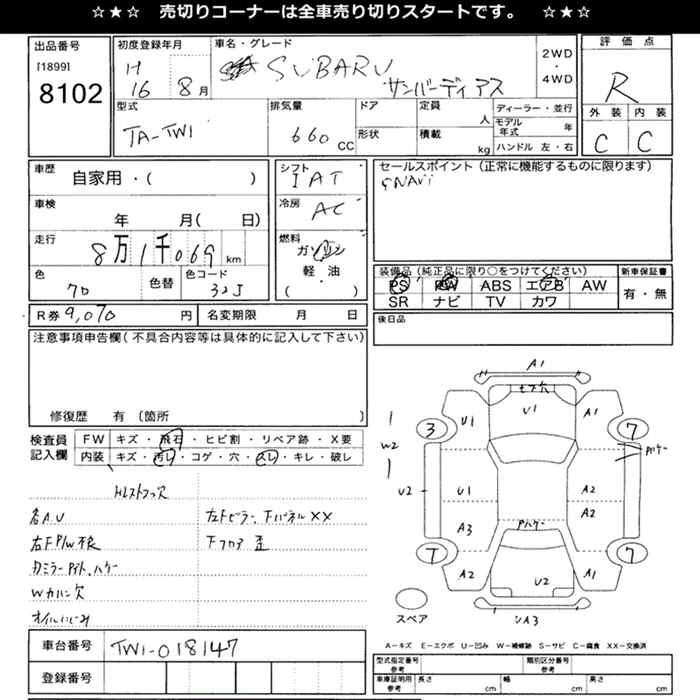 ☆★☆ 売切りコーナーは全車売り切りスタートです。 ☆★☆
出品番号 初度登録年月 車名・グレード 2WD・4WD 評価点
[1899] H SUBARU
8102 16 8月 サンバーディアス R
型式 排気量 ドア 定員 人 ディーラー・並行 外装 内装
TA-TW1 660 CC 形状 積載 kg モデル年式 年 C C
ハンドル 左・右
車歴 自家用・( ) シフト IAT セールスポイント(正常に機能するものに限ります)
車検 年 月( 日) 冷房 AC NAVi
走行 8万1千069 km 燃料 ガソリン
色 色替 色コード 32J 軽・油 ( )
装備品(純正品に限り○をつけてください) 新車保証書
PS PW ABS エアB AW 有・無
SR ナビ TV カワ
R券 9,070 円 名変期限 月 日 後日品
注意事項申告欄(不具合内容等は具体的に記入して下さい)
修復歴 有(箇所 )
検査員記入欄 FW キズ・飛石・ヒビ割・リペア跡・X要
内装 キズ・汚レ・コゲ・穴・スレ・キレ・破レ
各A.U 左Fピラー、下パネルXX
右F P/W不良 下フロア 歪
Wカバー欠
オイルにじみ
A1
U1 U1 A1
3 7
W2
U2 U1 A2
A3 A2
7 7
A2 U2 A1
UA3
スペア
A−キズ E−エクボ U−凹み W−補修跡 S−サビ C−腐食 XX−交換済
車台番号 TW1-018147
登録番号
型式指定番号参考 類別区分番号参考
車庫証明用参考 長さ cm 幅 cm 高さ cm